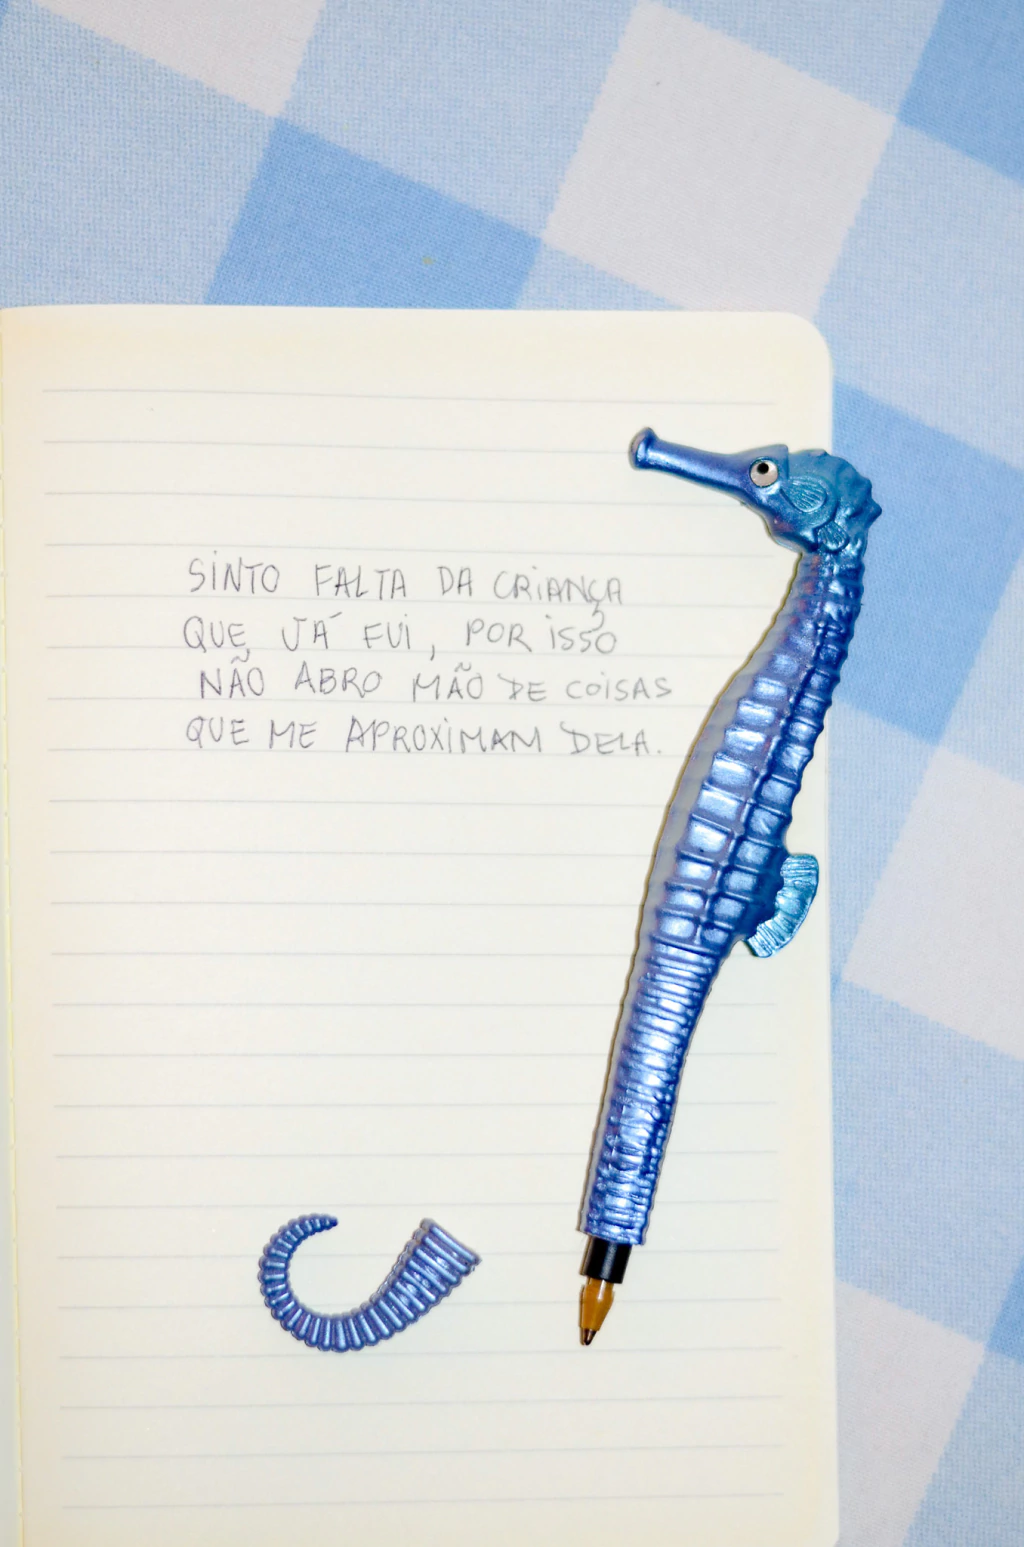 SINTO FALTA DA CRIANÇA
QUE JÁ FUI, POR ISSO
NÃO ABRO MÃO DE COISAS
QUE ME APROXIMAM DELA.